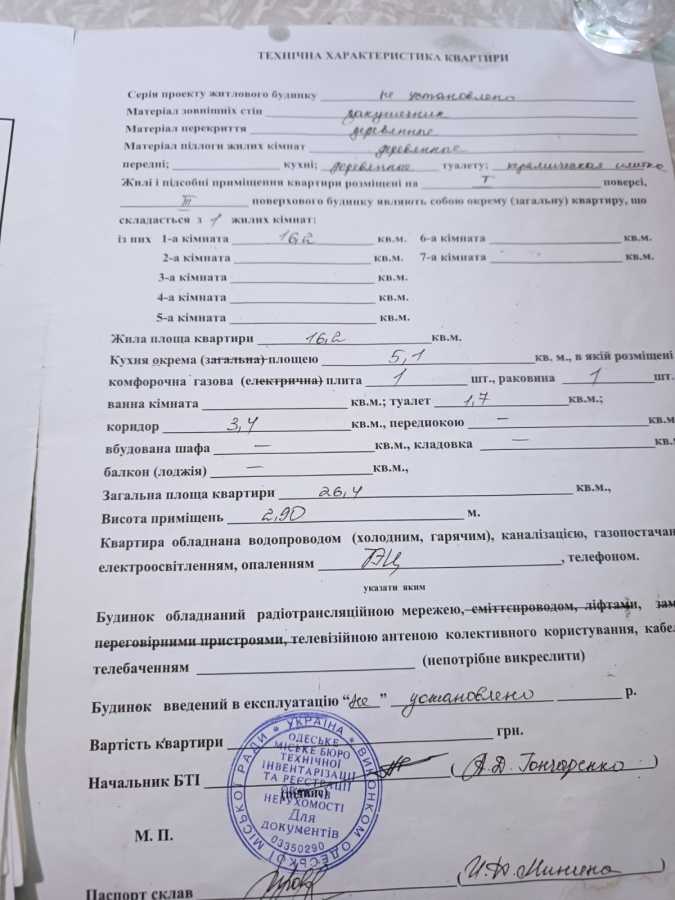 ТЕХНІЧНА ХАРАКТЕРИСТИКА КВАРТИРИ
Серія проекту житлового будинку не установлено
Матеріал зовнішніх стін ракушечник
Матеріал перекриття деревянное
Матеріал підлоги жилих кімнат деревянные
передні; кухні; деревянное туалету; керамическая плитка
Жилі і підсобні приміщення квартири розміщені на I поверсі,
III поверхового будинку являють собою окрему (загальну) квартиру, що
складається з 1 жилих кімнат:
із них 1-а кімната 16,2 кв.м. 6-а кімната кв.м.
2-а кімната кв.м. 7-а кімната кв.м.
3-а кімната кв.м.
4-а кімната кв.м.
5-а кімната кв.м.
Жила площа квартири 16,2 кв.м.
Кухня окрема (загальна) площею 5,1 кв. м., в якій розміщені
комфорочна газова (електрична) плита 1 шт., раковина 1 шт.
ванна кімната кв.м.; туалет 1,7 кв.м.;
коридор 3,4 кв.м., передпокою — кв.м
вбудована шафа — кв.м., кладовка — кв.
балкон (лоджія) — кв.м.,
Загальна площа квартири 26,4 кв.м.,
Висота приміщень 2,90 м.
Квартира обладнана водопроводом (холодним, гарячим), каналізацією, газопостачан
електроосвітленням, опаленням ТЭЦ, телефоном.
указати яким
Будинок обладнаний радіотрансляційною мережею, сміттєпроводом, ліфтами, зам
переговірними пристроями, телевізійною антеною колективного користування, кабел
телебаченням (непотрібне викреслити)
Будинок введений в експлуатацію “не” установлено р.
Вартість квартири грн.
Начальник БТІ (А.Д. Гончаренко)
(підпис)
М. П.
Паспорт склав
ВИКОНКОМ ОДЕСЬКОЇ МІСЬКОЇ РАДИ * УКРАЇНА *
ОДЕСЬКЕ
МІСЬКЕ БЮРО
ТЕХНІЧНОЇ
ІНВЕНТАРІЗАЦІЇ
ТА РЕЄСТРАЦІЇ
НЕРУХОМОСТІ
Для
документів
03350290